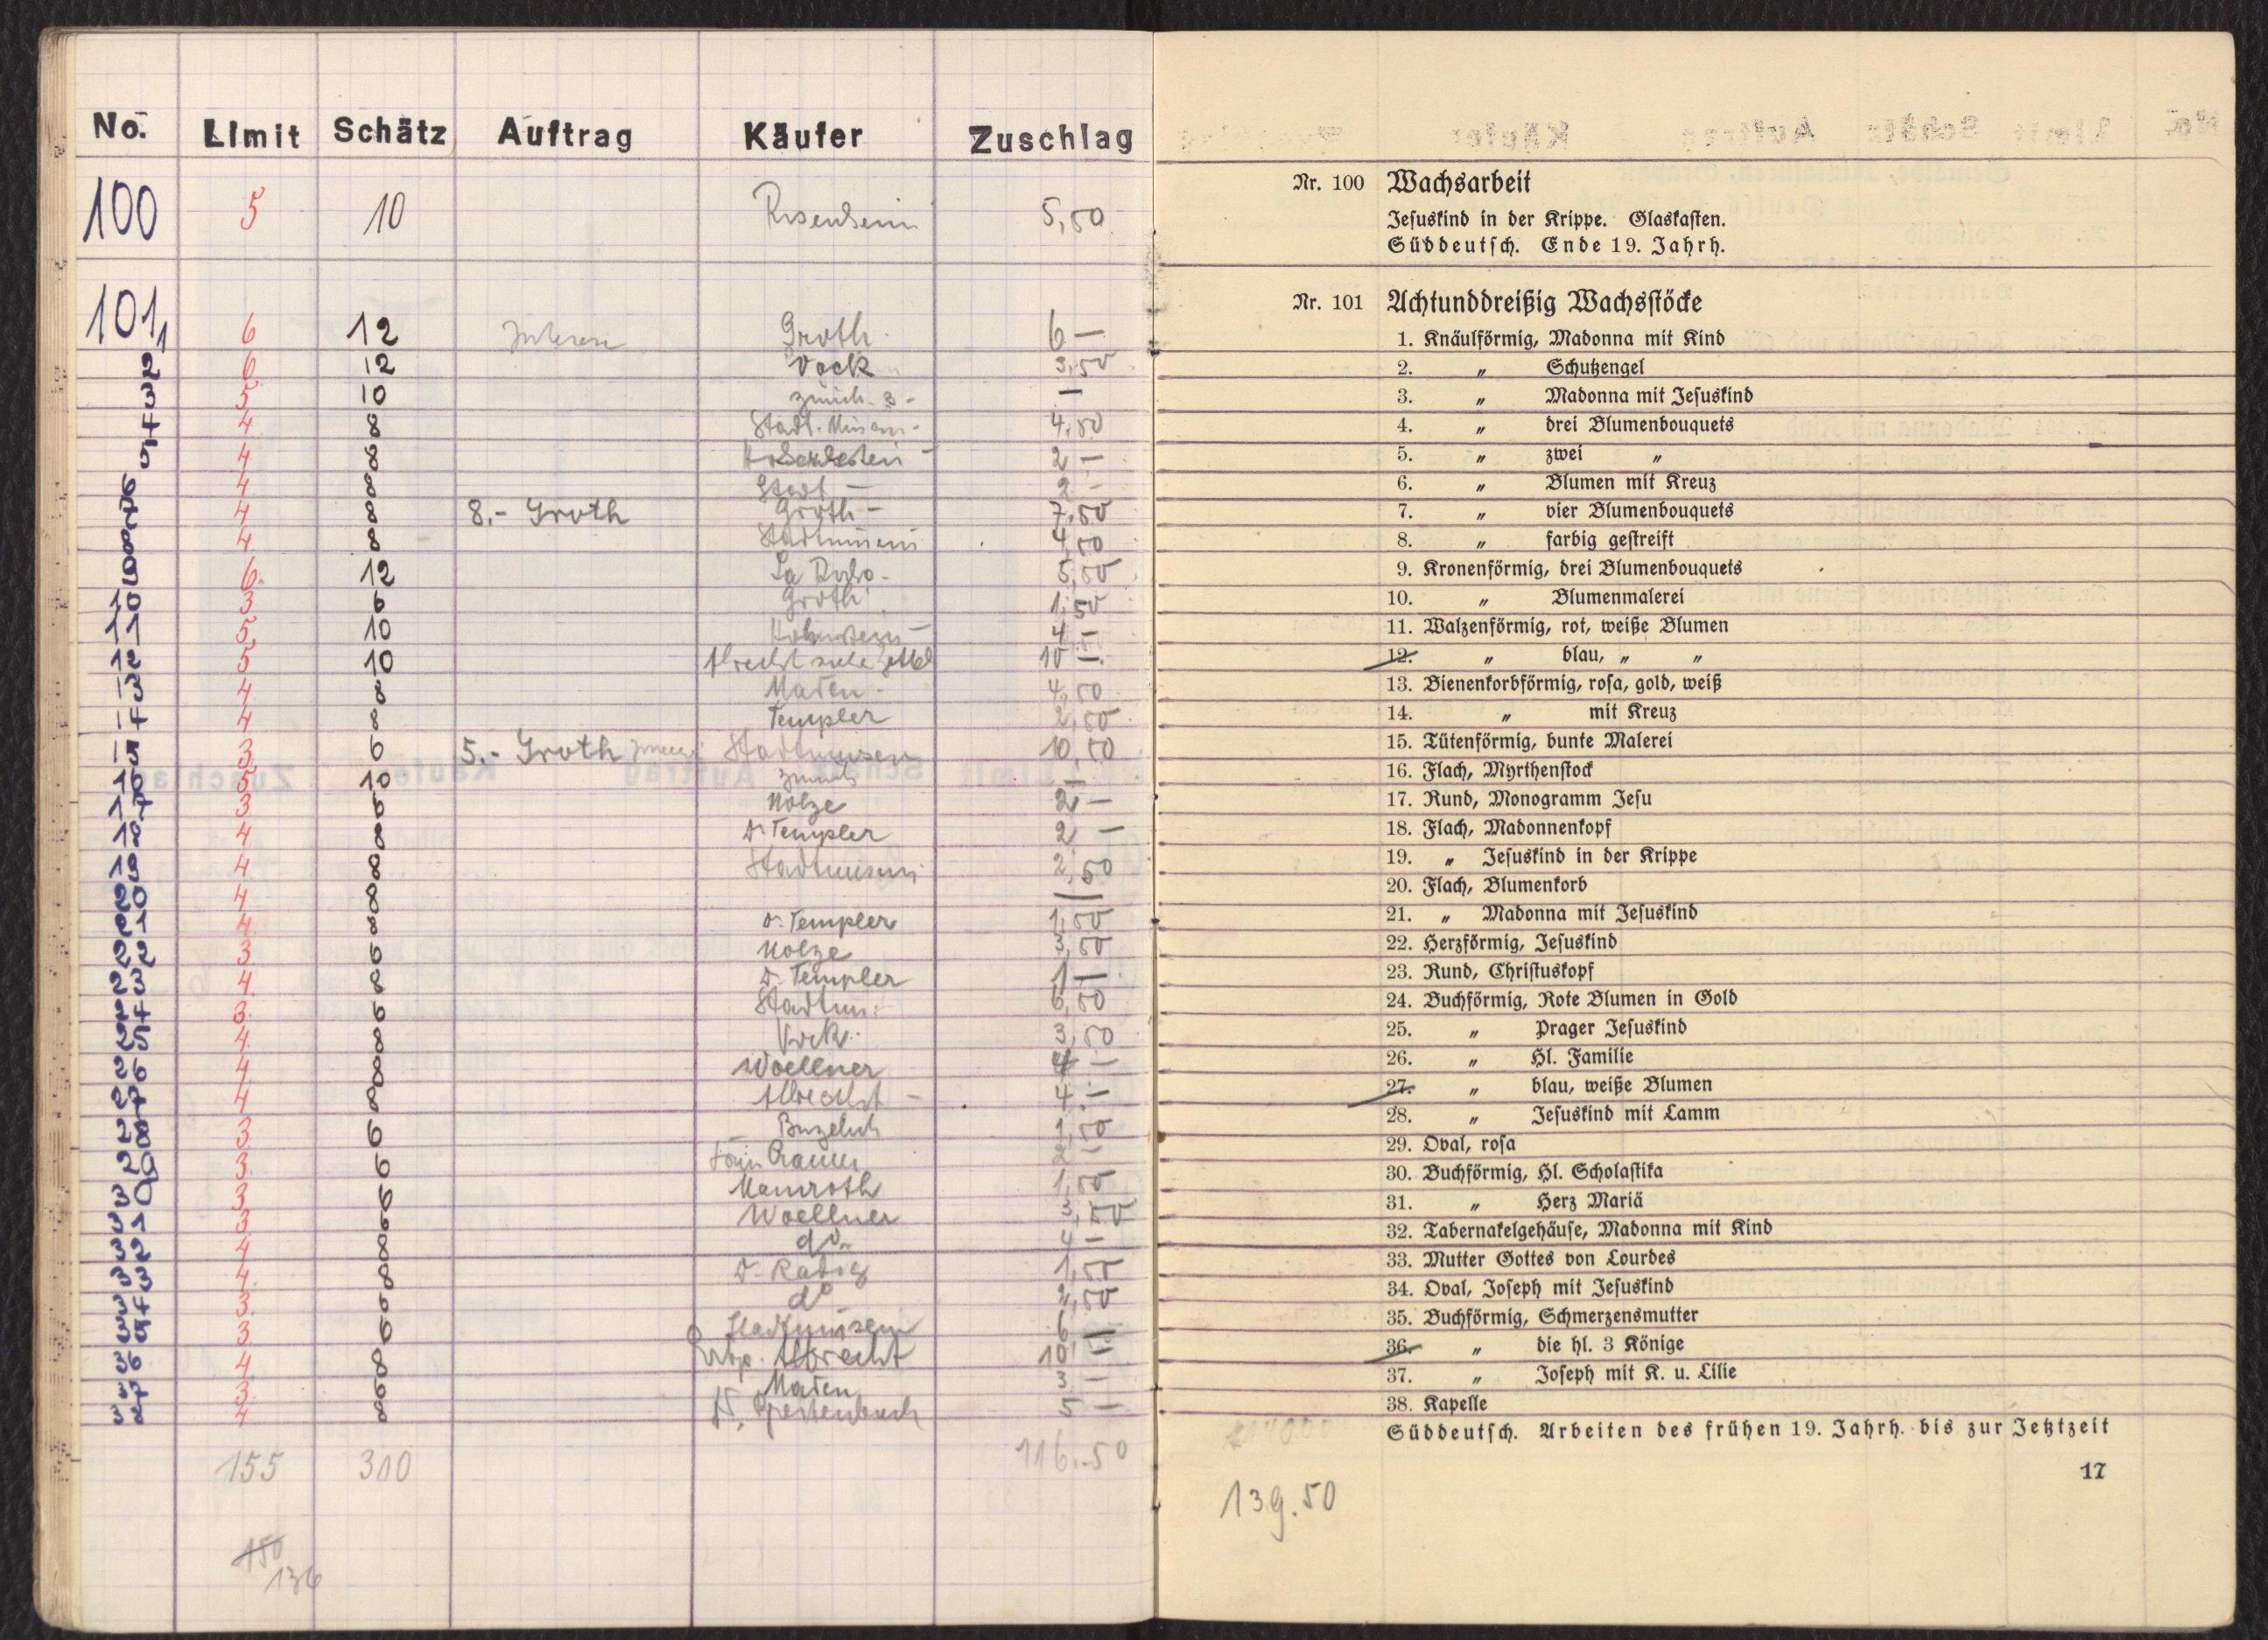 No. Limit Schätz Auftrag Käufer Zuschlag
100 5 10 5,50
101
1 6 12 Groth 6 —
2 6 12 Vock 3,50
3 5 10 zurück —
4 4 8 Stadt. 4,50
5 4 8 2 —
6 4 8 Stadt — 2 —
7 4 8 8.- Groth Groth — 7,50
8 4 8 4,50
9 6 12 5,50
10 3 6 Groth 1,50
11 5 10 4 —
12 5 10 10 —
13 4 8 Maden 4,50
14 4 8 Templer 2,50
15 3 6 5.- Groth Stadtmuseum 10,50
16 5 10 zurück —
17 3 6 Nolze 2 —
18 4 8 Dr Templer 2 —
19 4 8 2,50
20 4 8 —
21 4 8 Dr. Templer 1,50
22 3 6 Nolze 3,50
23 4 8 Dr. Templer 1 —
24 3 6 Stadtm. 6,50
25 4 8 Vock. 3,50
26 4 8 Woellner 4 —
27 4 8 Albrecht — 4 —
28 3 6 1,50
29 3 6 2 —
30 3 6 Mamroth 1,50
31 3 6 Woellner 3,50
32 4 8 do 4 —
33 4 8 1,50
34 3 6 do 2,50
35 3 6 Stadtmuseum 6 —
36 4 8 Albrecht 10 —
37 3 6 Maden 3 —
38 4 8 5 —
155 310 116.50
150
136
Nr. 100 Wachsarbeit
Jesuskind in der Krippe. Glaskasten.
Süddeutsch. Ende 19. Jahrh.
Nr. 101 Achtunddreißig Wachsstöcke
1. Knäulförmig, Madonna mit Kind
2. „ Schutzengel
3. „ Madonna mit Jesuskind
4. „ drei Blumenbouquets
5. „ zwei „
6. „ Blumen mit Kreuz
7. „ vier Blumenbouquets
8. „ farbig gestreift
9. Kronenförmig, drei Blumenbouquets
10. „ Blumenmalerei
11. Walzenförmig, rot, weiße Blumen
12. „ blau, „ „
13. Bienenkorbförmig, rosa, gold, weiß
14. „ mit Kreuz
15. Tütenförmig, bunte Malerei
16. Flach, Myrthenstock
17. Rund, Monogramm Jesu
18. Flach, Madonnenkopf
19. „ Jesuskind in der Krippe
20. Flach, Blumenkorb
21. „ Madonna mit Jesuskind
22. Herzförmig, Jesuskind
23. Rund, Christuskopf
24. Buchförmig, Rote Blumen in Gold
25. „ Prager Jesuskind
26. „ Hl. Familie
27. „ blau, weiße Blumen
28. „ Jesuskind mit Lamm
29. Oval, rosa
30. Buchförmig, Hl. Scholastika
31. „ Herz Mariä
32. Tabernakelgehäuse, Madonna mit Kind
33. Mutter Gottes von Lourdes
34. Oval, Joseph mit Jesuskind
35. Buchförmig, Schmerzensmutter
36. „ die hl. 3 Könige
37. „ Joseph mit K. u. Lilie
38. Kapelle
Süddeutsch. Arbeiten des frühen 19. Jahrh. bis zur Jetztzeit
17
139.50